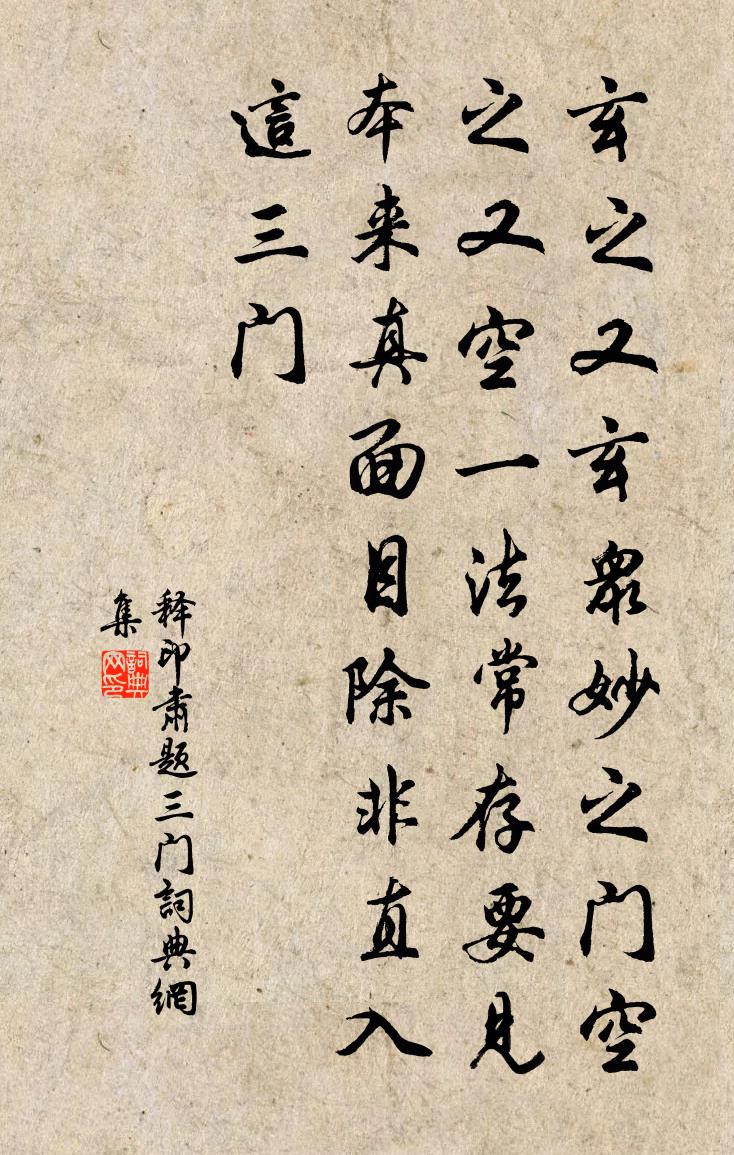 玄之又玄众妙之门空
之又空一法常存要见
本来真面目除非直入
這三门
释印肃题三门詞典網
集
詞典
网印